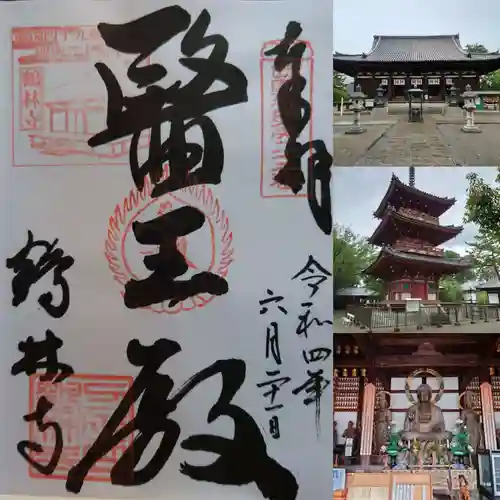 奉拝
令和四年
六月二十一日
醫王殿
鶴林寺
鶴林寺